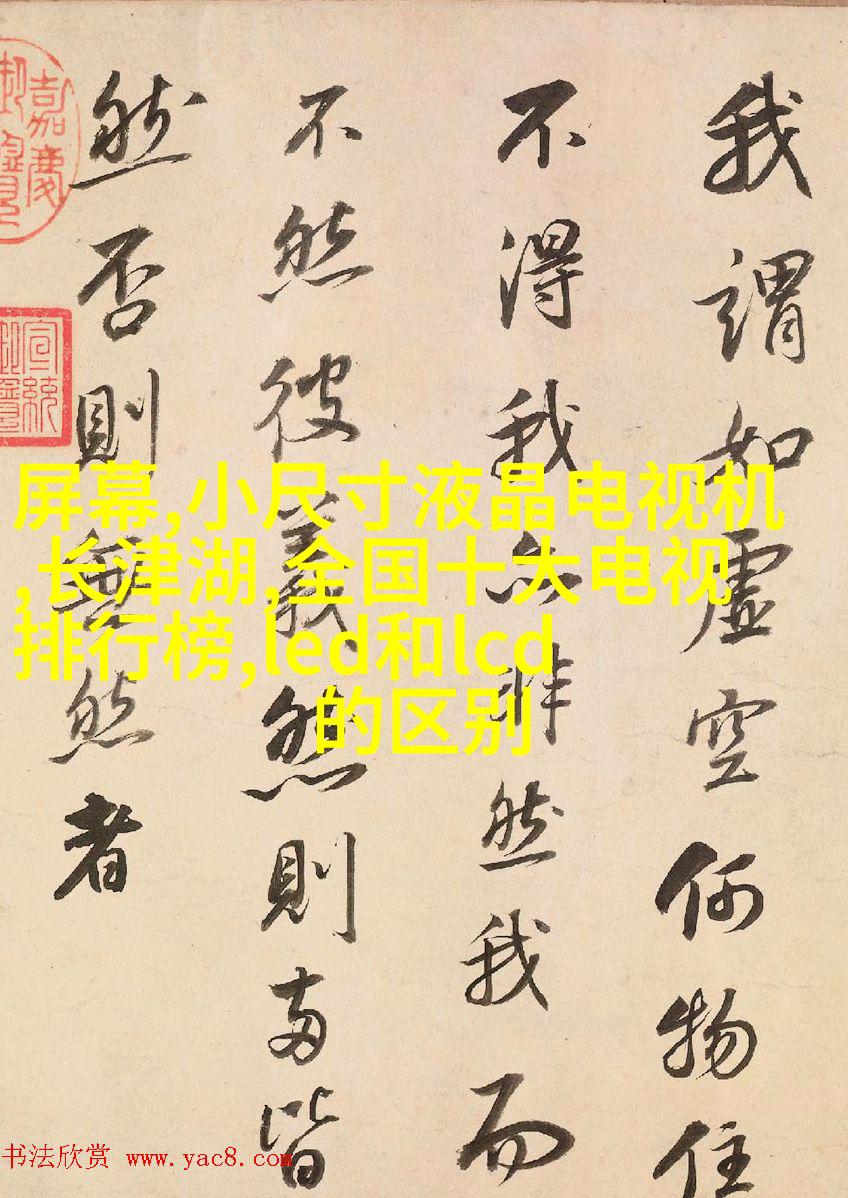 我謂如虛空何物住
不得我亦非然我而
不然彼義然則兩皆
然否則無然者
嘉慶
宣統
屏幕,小尺寸液晶电视机
,长津湖,全国十大电视
排行榜,led和lcd
的区别
书法欣赏 www.yac8.com